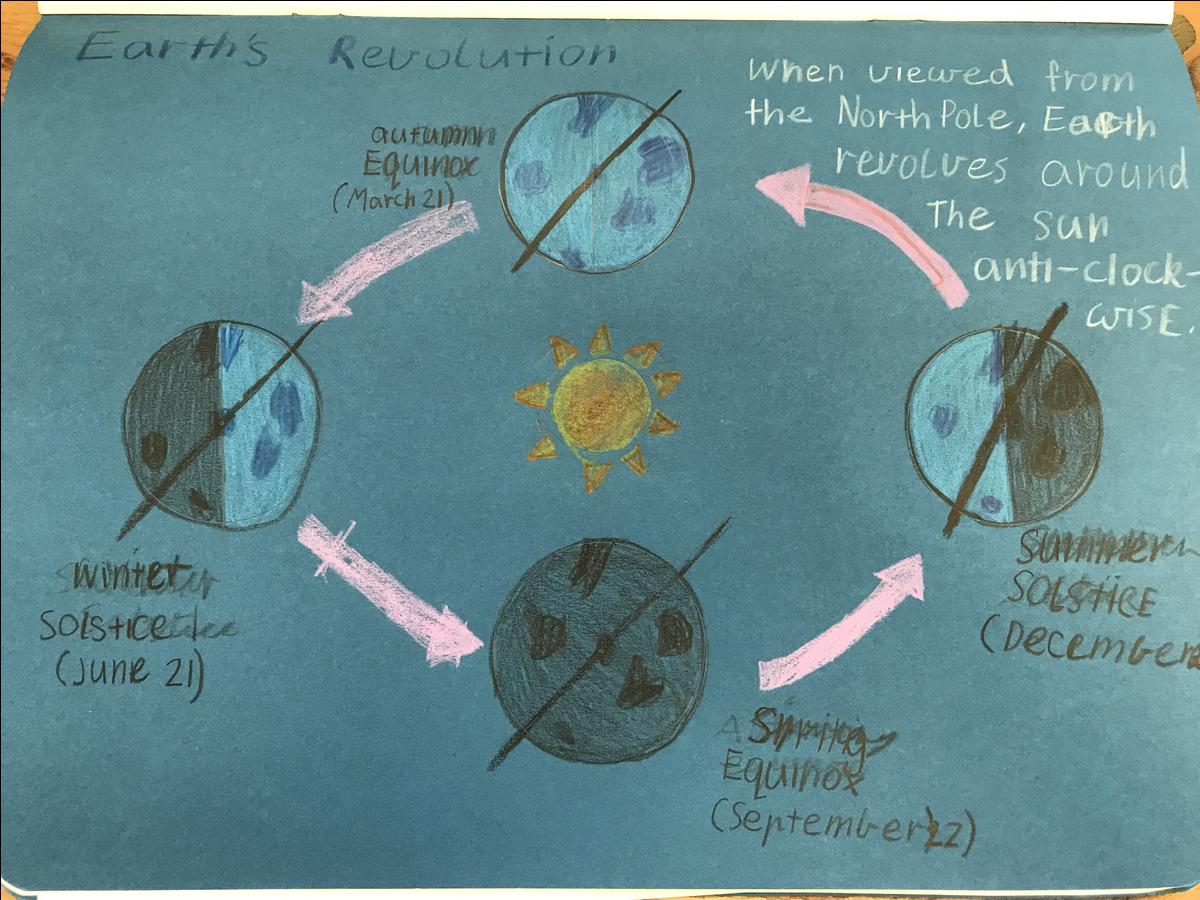 Earth's Revolution
When viewed from
the North Pole, Earth
revolves around
The sun
anti-clock-
wise.
autumn
Equinox
(March 21)
winter
SOLSTICE
(June 21)
Summer
SOLSTICE
(December
Spring
Equinox
(September 22)